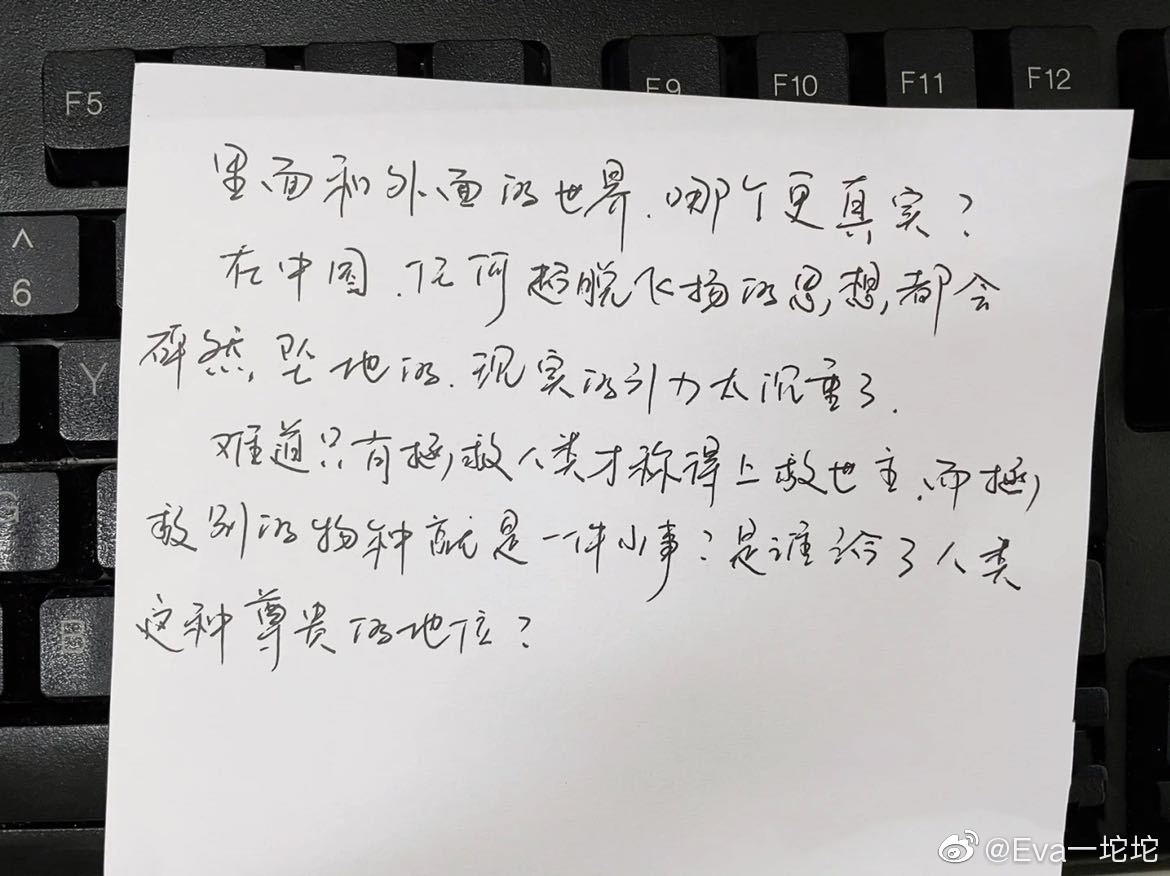 F5
F9
F10
F11
F12
^
6
Y
G
B
里面和外面的世界.哪个更真实?
在中国.任何超脱飞扬的思想,都会
砰然坠地的.现实的引力太沉重了.
难道只有拯救人类才称得上救世主.而拯
救别的物种就是一件小事?是谁给了人类
这种尊贵的地位?
@Eva一坨坨